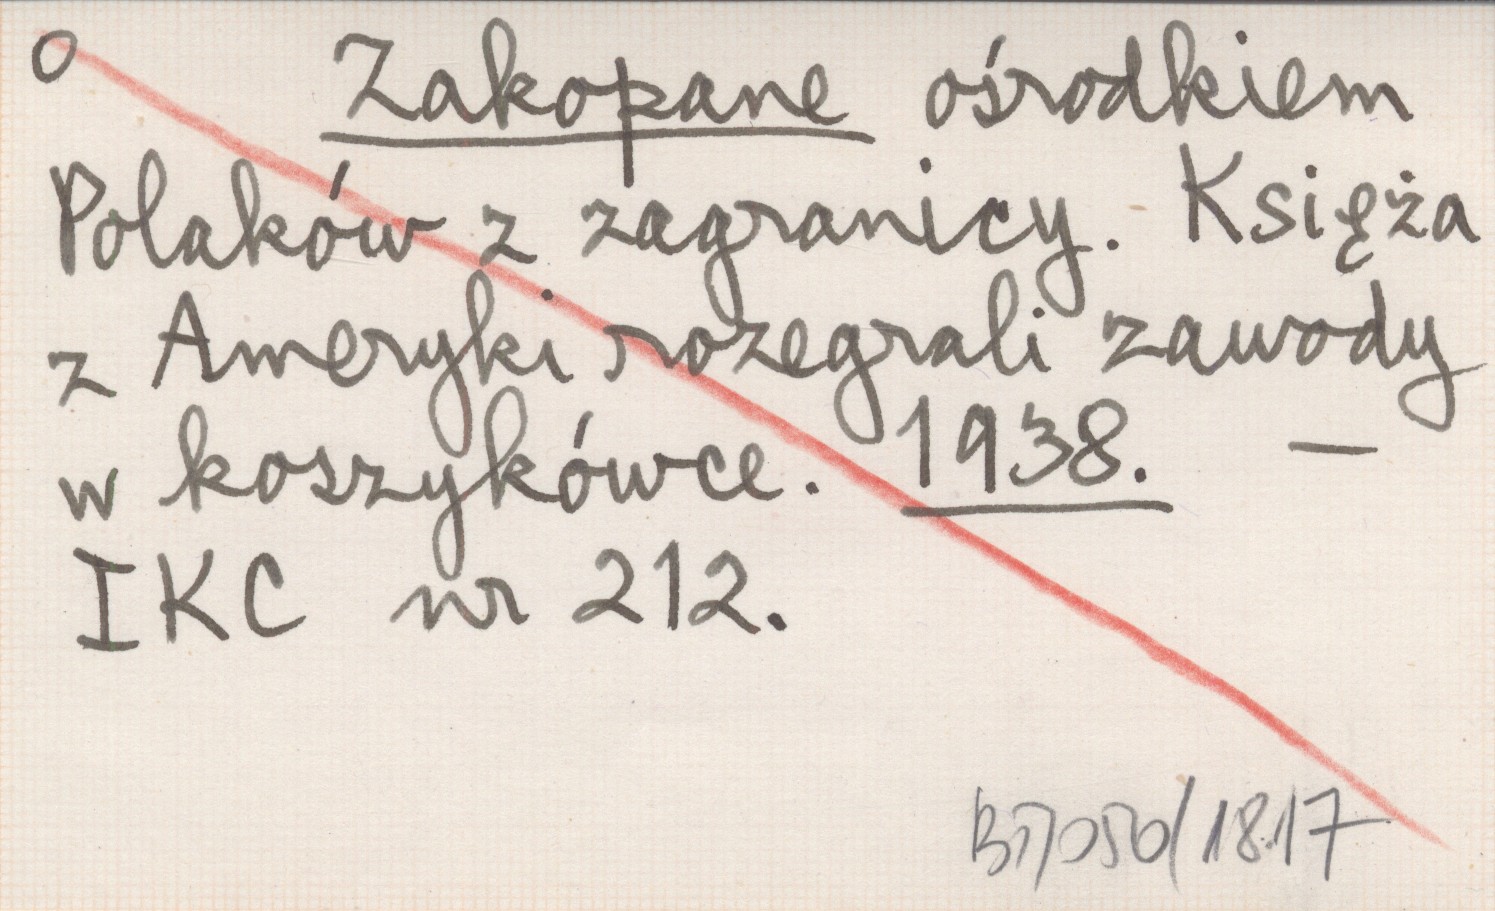 o Zakopane ośrodkiem
Polaków z zagranicy. Księża
z Ameryki rozegrali zawody
w koszykówce. 1938. —
IKC nr 212.